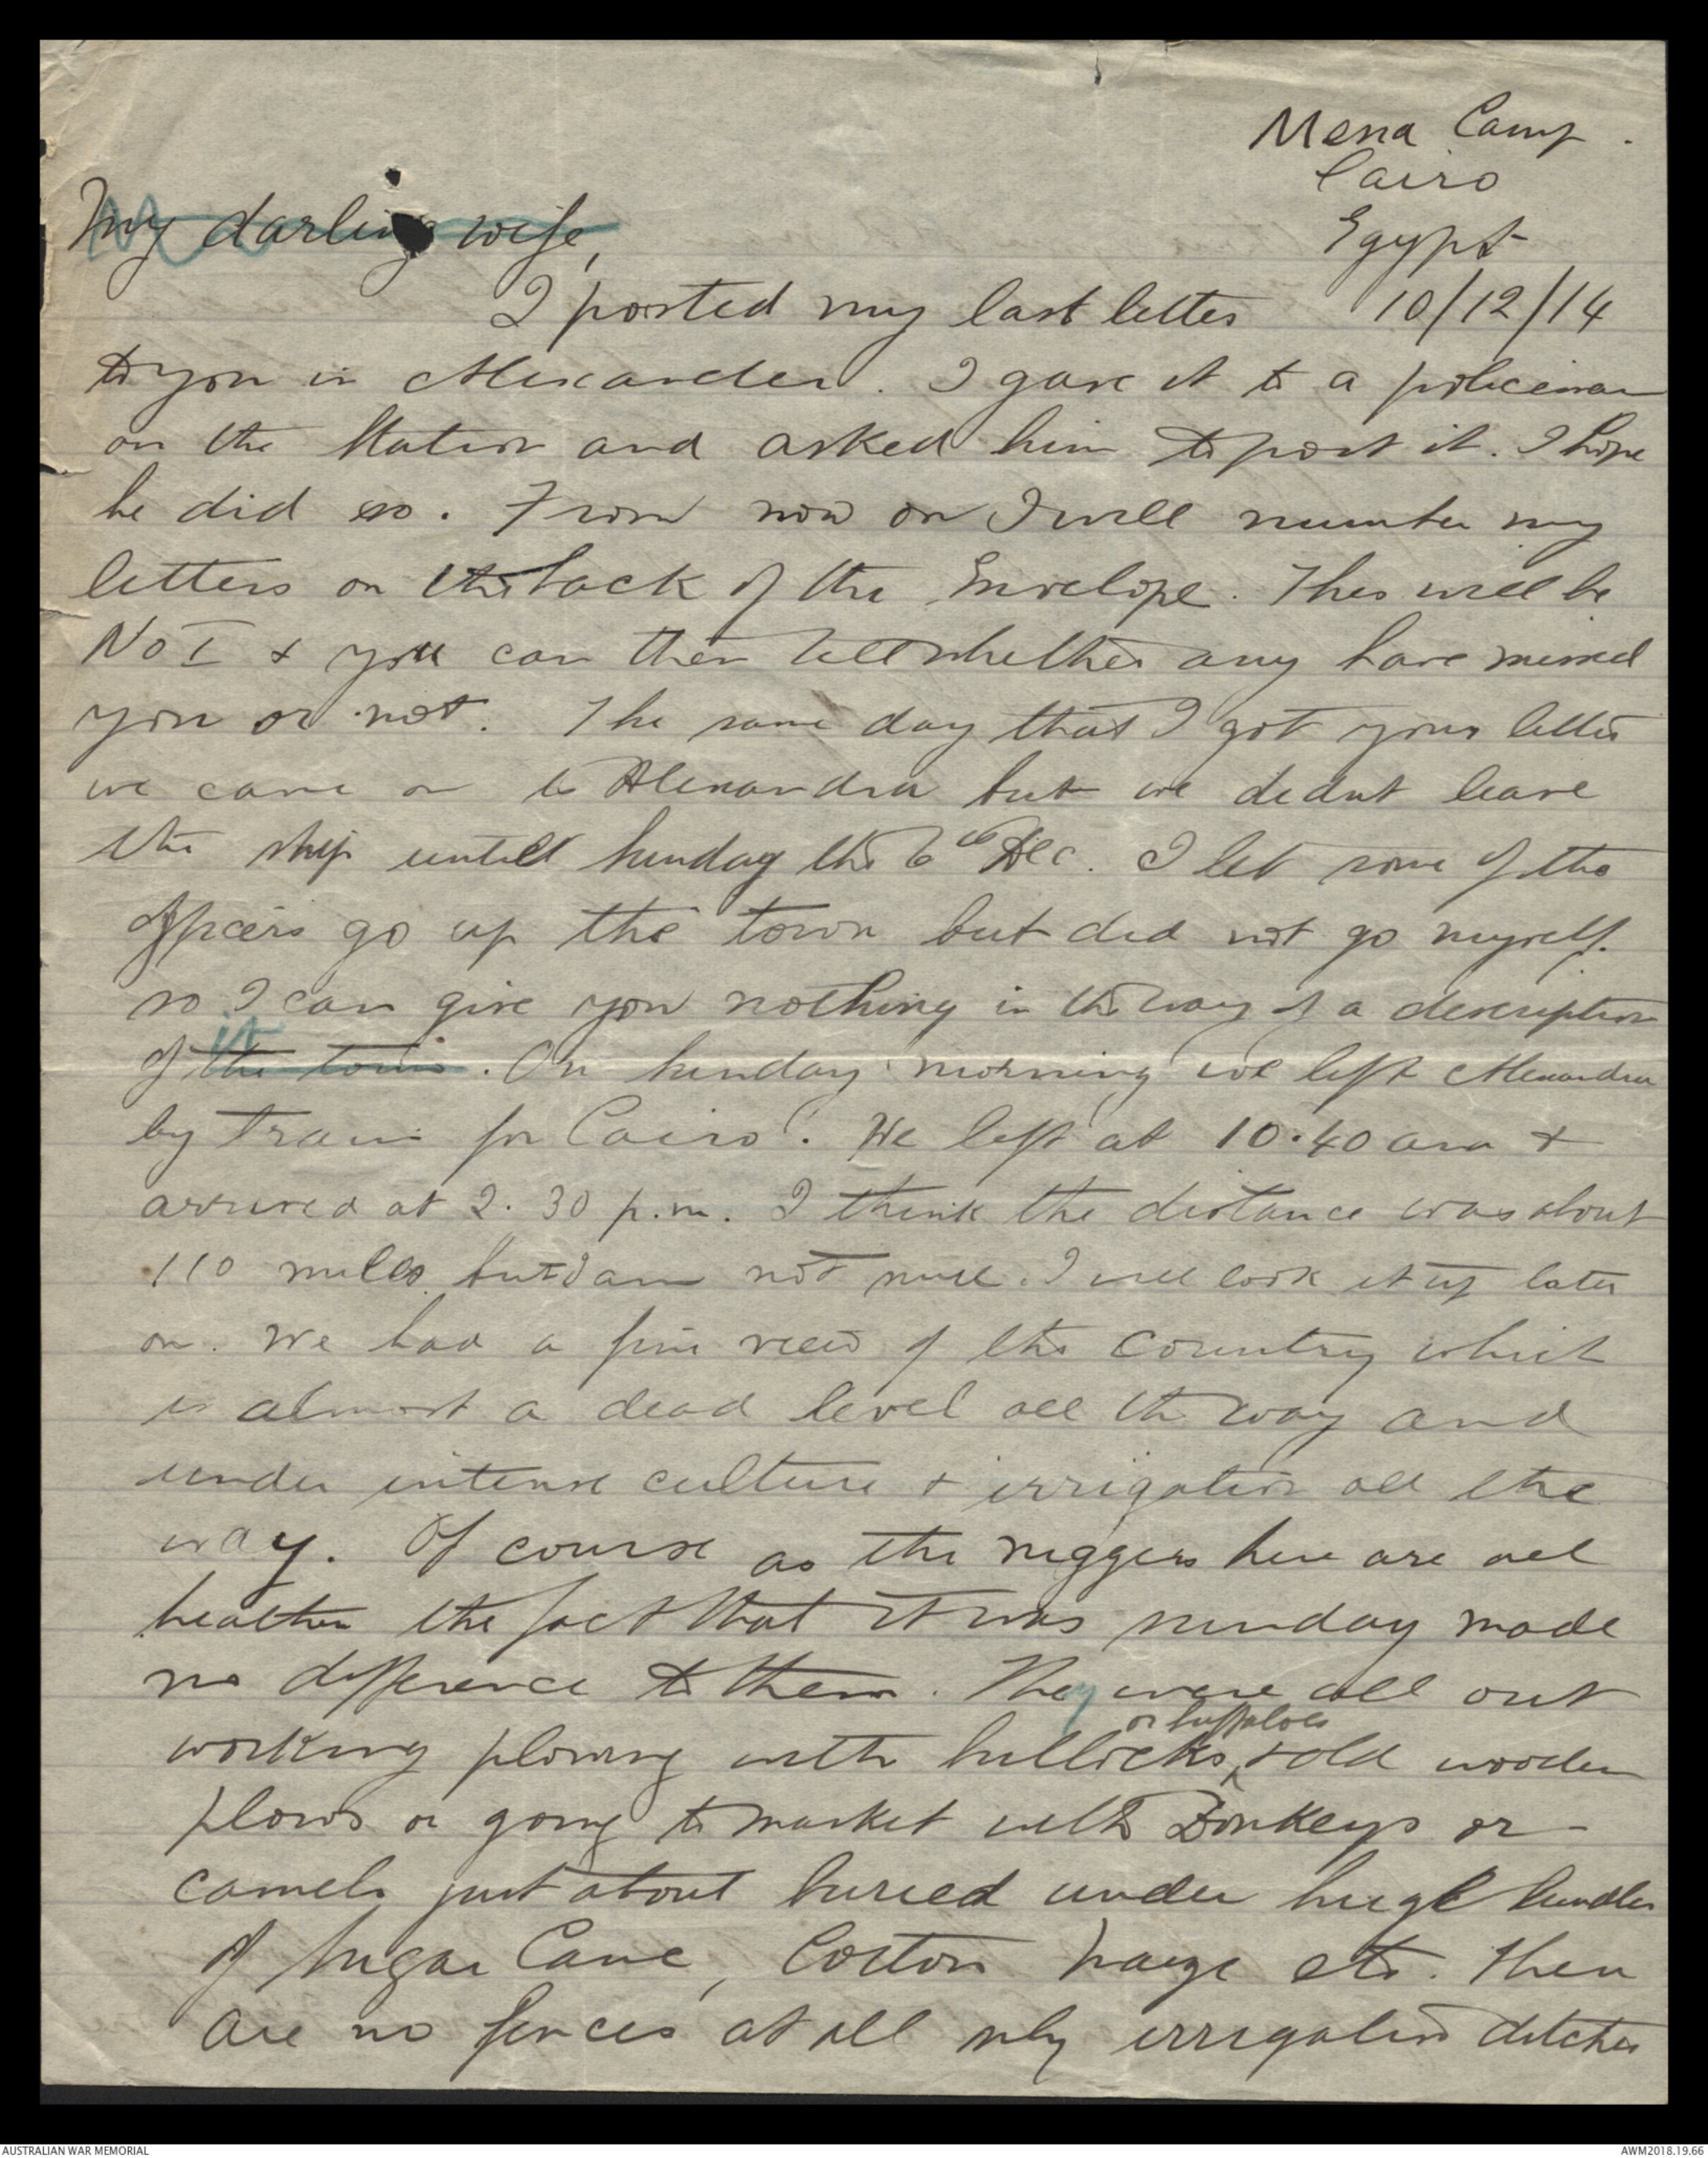 Mena Camp.
Cairo
Egypt
My darling wife,
I posted my last letter 10/12/14
to you in Alexander. I gave it to a policeman
on the Station and asked him to post it. I hope
he did so. From now on I will number my
letters on the back of the Envelope. This will be
No I & you can then tell whether any have missed
you or not. The same day that I got your letter
we came on to Alexandra but we didnt leave
the ship untill Sunday the 6th Dec. I let some of the
officers go up the town but did not go myself.
so I can give you nothing in the way of a description
it
of the town. On Sunday morning we left Alexandra
by train for Cairo. We left at 10.40 am &
arrived at 2.30 p.m. I think the distance was about
110 miles but I am not sure. I will look it up later
on. We had a fine view of the country which
is almost a dead level all the way and
under intense culture & irrigation all the
way. Of course as the niggers here are all
heathen the fact that it was Sunday made
no difference to them. They were all out
or buffaloes
working plowing with bullocks, & old wooden
plows or going to market with Donkeys or -
camels just about buried under huge bundles
of Sugar Cane, Cotton maize etc. There
are no fences at all only irrigation ditches
AUSTRALIAN WAR MEMORIAL
AWM2018.19.66